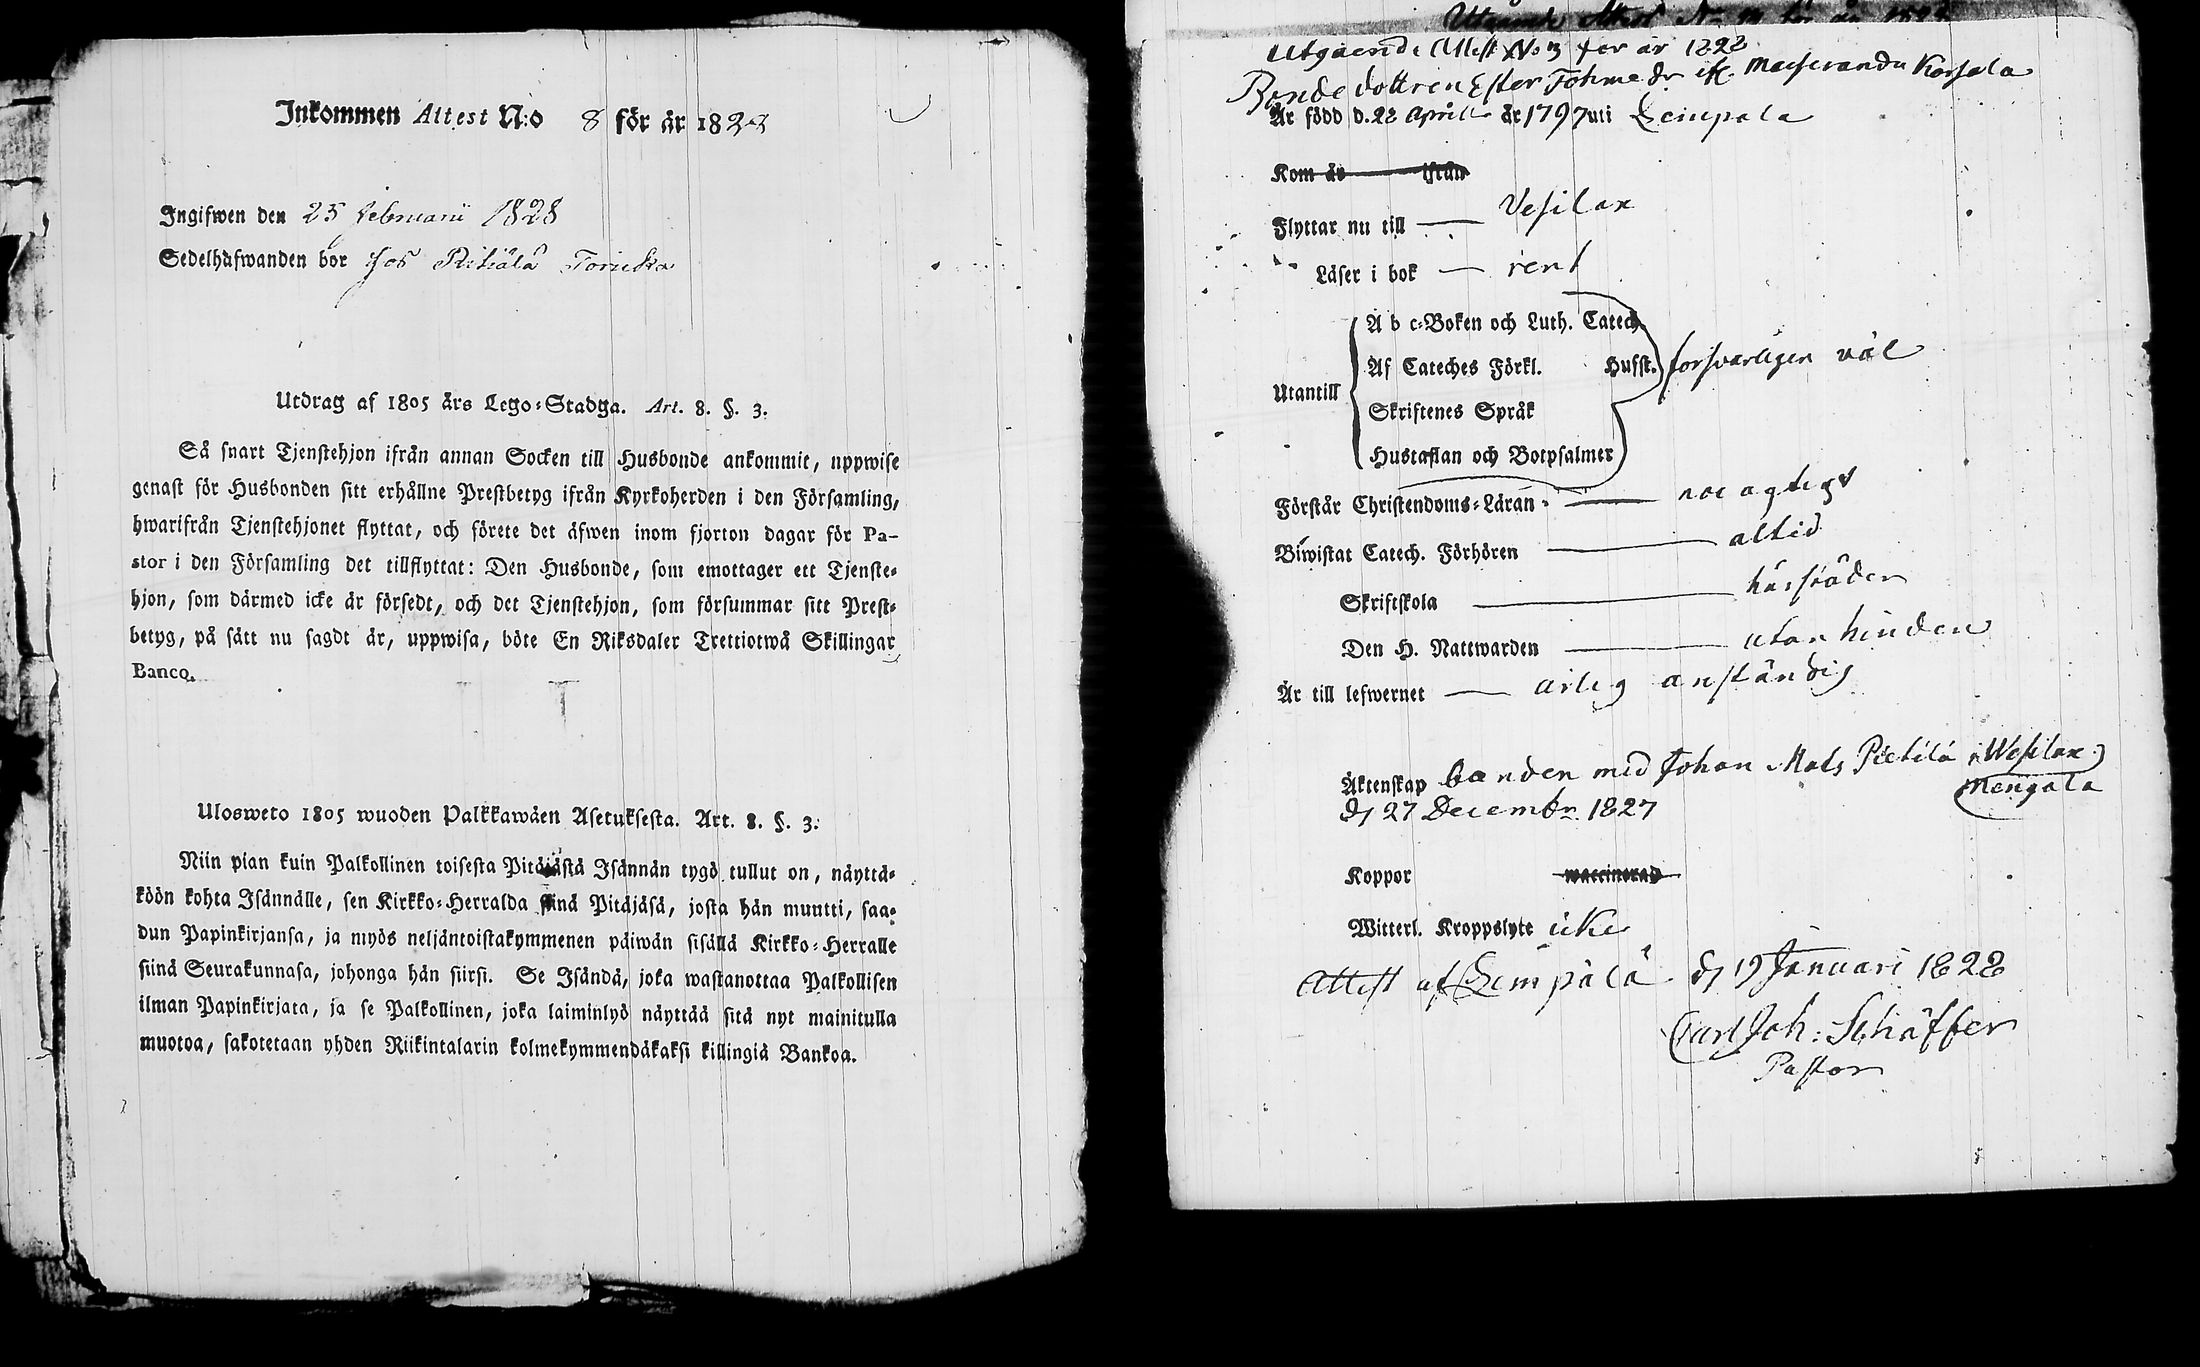 Inkommen Attest N:o 8 för år 1828
Ingifwen den 25 februarii 1828
Sedelhafwanden bor hos Pietilä Toricka
Utdrag af 1805 års Lego-Stadga. Art. 8. §. 3.
Så snart Tjenstehjon ifrån annan Socken till Husbonde ankommit, uppwise
genast för Husbonden sitt erhållne Prestbetyg ifrån Kyrkoherden i den Församling,
hwarifrån Tjenstehjonet flyttat, och förete det äfwen inom fjorton dagar för Pa-
stor i den Församling det tillflyttat: Den Husbonde, som emottager ett Tjenste-
hjon, som därmed icke är försedt, och det Tjenstehjon, som försummar sitt Prest-
betyg, på sätt nu sagdt är, uppwisa, böte En Riksdaler Trettiotwå Skillingar
Banco.
Ulosweto 1805 wuoden Palkkawäen Asetuksesta. Art. 8. §. 3.
Niin pian kuin Palkollinen toisesta Pitäjästä Isännän tygö tullut on, näyttä-
köön kohta Isännälle, sen Kirkko-Herralda siinä Pitäjäsä, josta hän muutti, saa-
dun Papinkirjansa, ja myös neljäntoistakymmenen päiwän sisällä Kirkko-Herralle
siinä Seurakunnasa, johonga hän siirsi. Se Isändä, joka wastanottaa Palkollisen
ilman Papinkirjata, ja se Palkollinen, joka laiminlyö näyttää sitä nyt mainitulla
muotoa, sakotetaan yhden Riikintalarin kolmekymmendäkaksi killingiä Bankoa.
Utgående Attest No 3 för år 1828
Bonde dottren Ester Tohmedr ifr. Korsala
Är född d. 22 April år 1797 uti Lempala
Kom år ifrån
Flyttar nu till Vesilax
Läser i bok rent
A b c-Boken och Luth. Catech.
Af Cateches Förkl. Hufst. forsvarligen väl
Utantill
Skriftenes Språk
Hustaflan och Botpsalmer
Förstår Christendoms-Läran noe agtigt
Biwistat Catech. Förhören altid
Skriftskola härstäden
Den H. Nattwarden utan hinder
Är till lefwernet ärlig anständig
Äktenskap banden med Johan Mats Pietilä i Wesilax
Mengala
d 27 Decembr 1827
Koppor waccinerad
Witterl. Kroppslyte icke
Attest af Lempälä d 19 Januari 1828
Carl Joh: Schäffer
Pastor